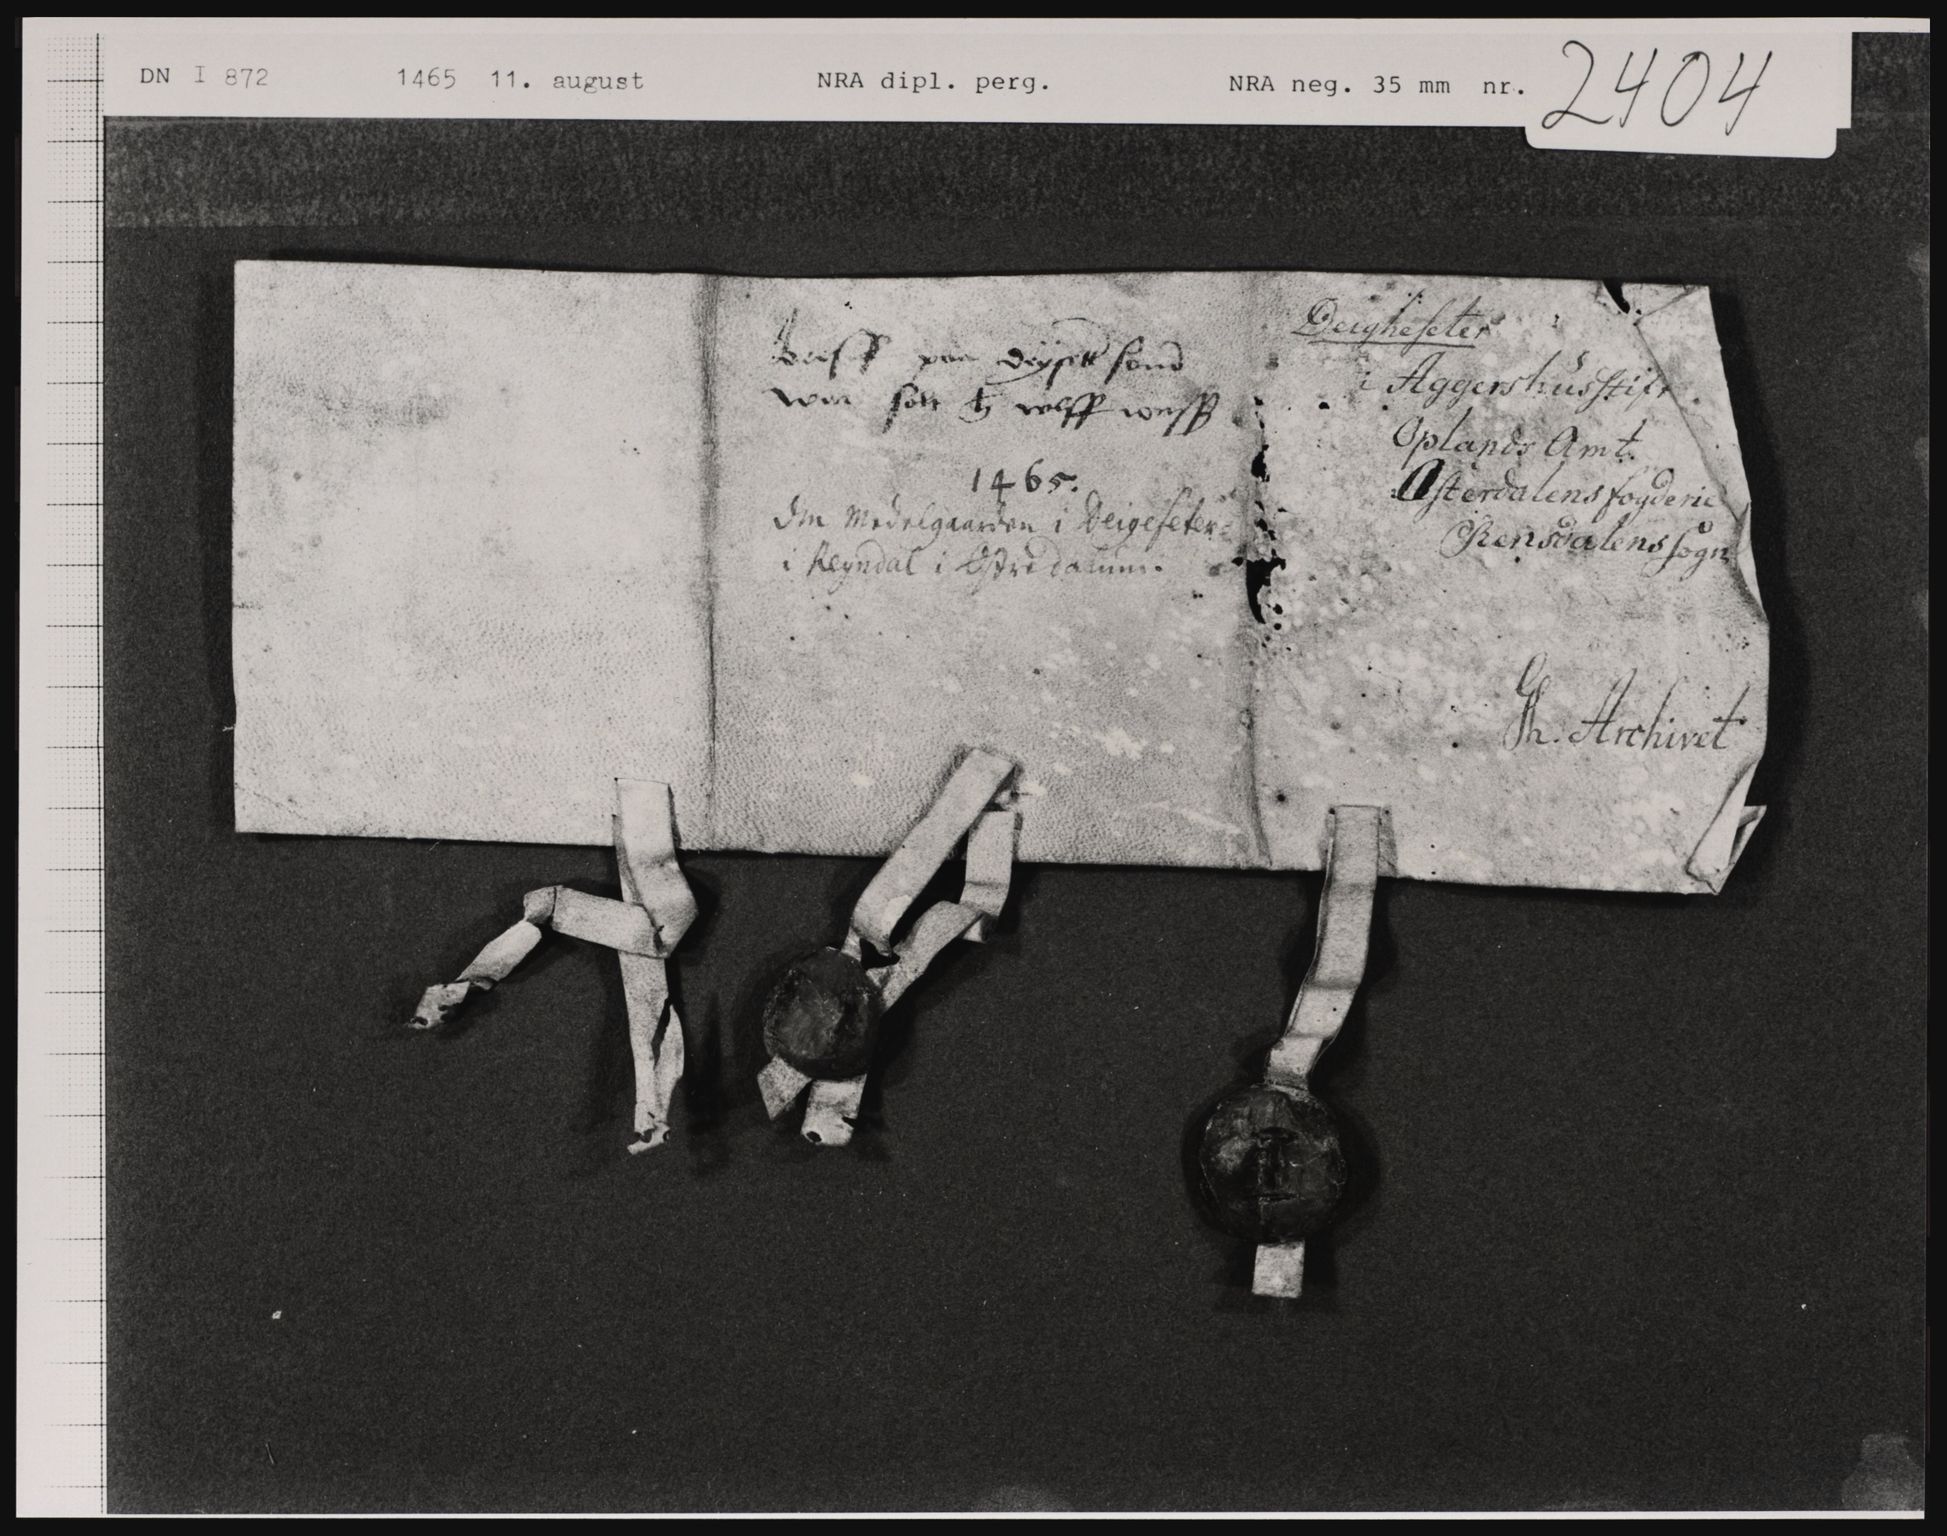 DN I 872 1465 11. august NRA dipl. perg. NRA neg. 35 mm nr. 2404
paa
1465.
Om Medelgaarden i Deigeseter
i Reyndal i Østredalum.
Deigheseter
i Aggershusstift
Oplands Amt.
Østerdalens fogderie
Rensdalens sogn
Gh. Archivet